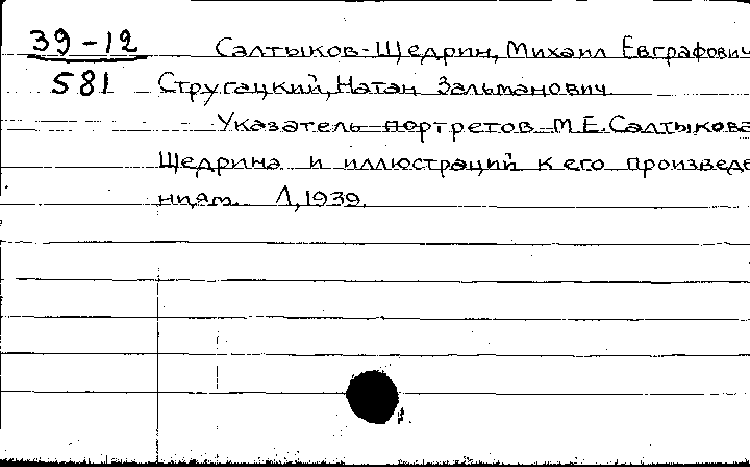 39-12
581
Салтыков-Щедрин, Михаил Евграфович
Стругацкий, Натан Зальманович
Указатель портретов М.Е.Салтыкова
Щедрина и иллюстраций к его произведе
ниям. Л, 1939.